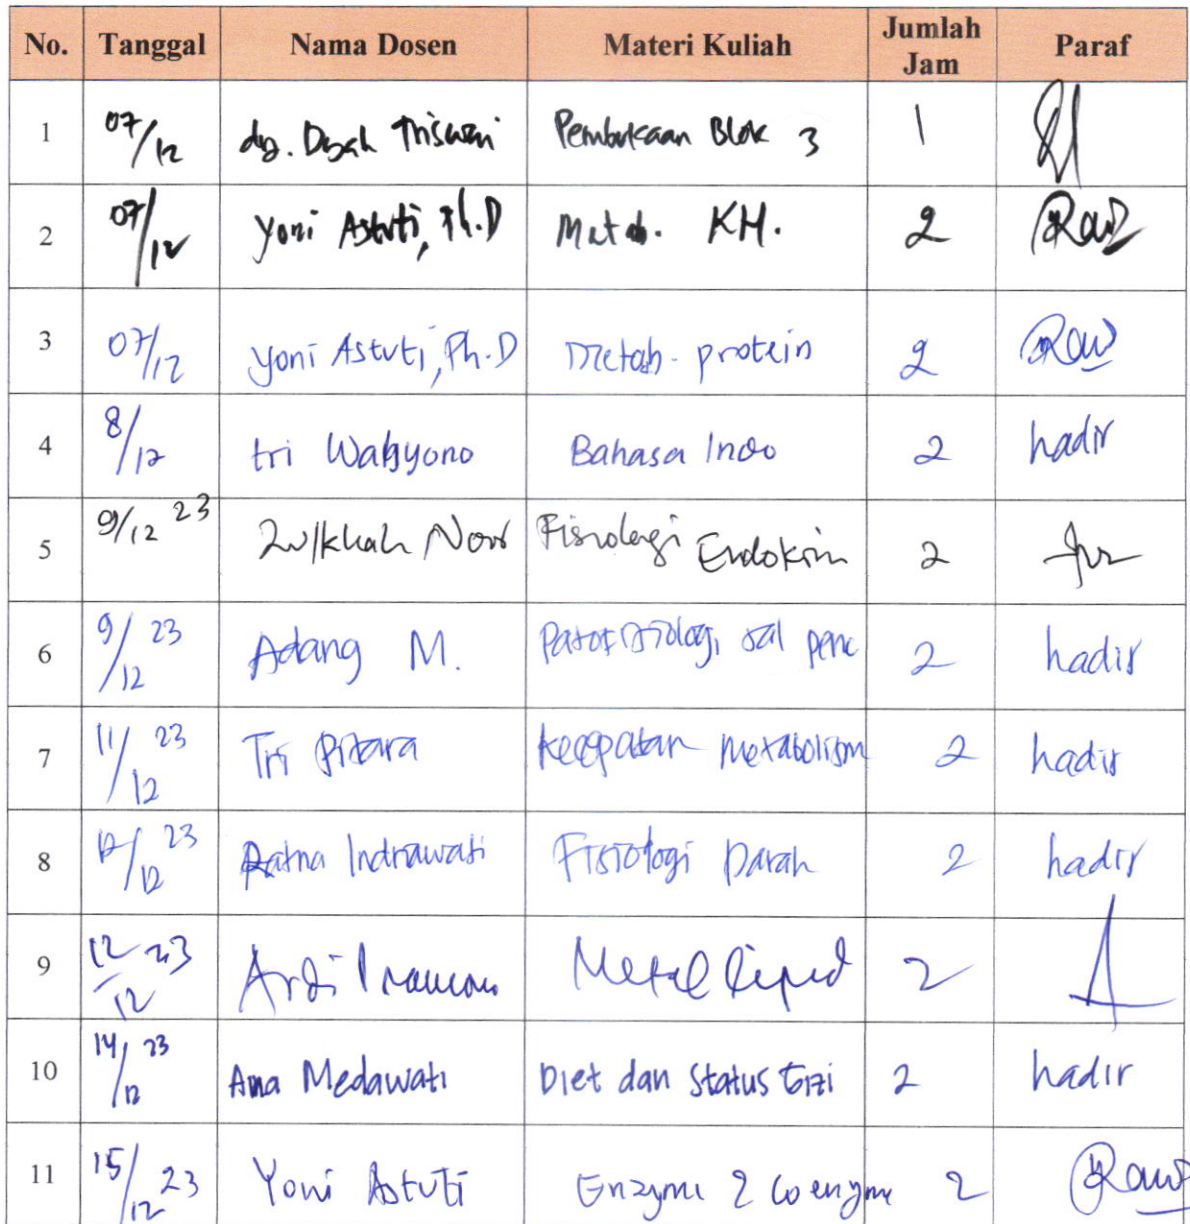 No. Tanggal Nama Dosen Materi Kuliah Jumlah Jam Paraf
1 07/12 drg. Dyah Triswari Pembukaan Blok 3 1
2 07/12 Yoni Astuti, Ph.D Metab. KH. 2
3 07/12 Yoni Astuti, Ph.D Metab. protein 2
4 8/12 tri Wahyono Bahasa Indo 2 hadir
5 9/12 23 Zulkhah Noor Fisiologi Endokrin 2
6 9/12 23 Adang M. Patofisiologi sal penc 2 hadir
7 11/12 23 Tri Pitara Kecepatan Metabolism 2 hadir
8 12/12 23 Ratna Indriawati Fisiologi Darah 2 hadir
9 12/12 23 Ardi Metab Lipid 2
10 14/12 23 Ana Medawati Diet dan Status Gizi 2 hadir
11 15/12 23 Yoni Astuti Enzyme & Coenzyme 2